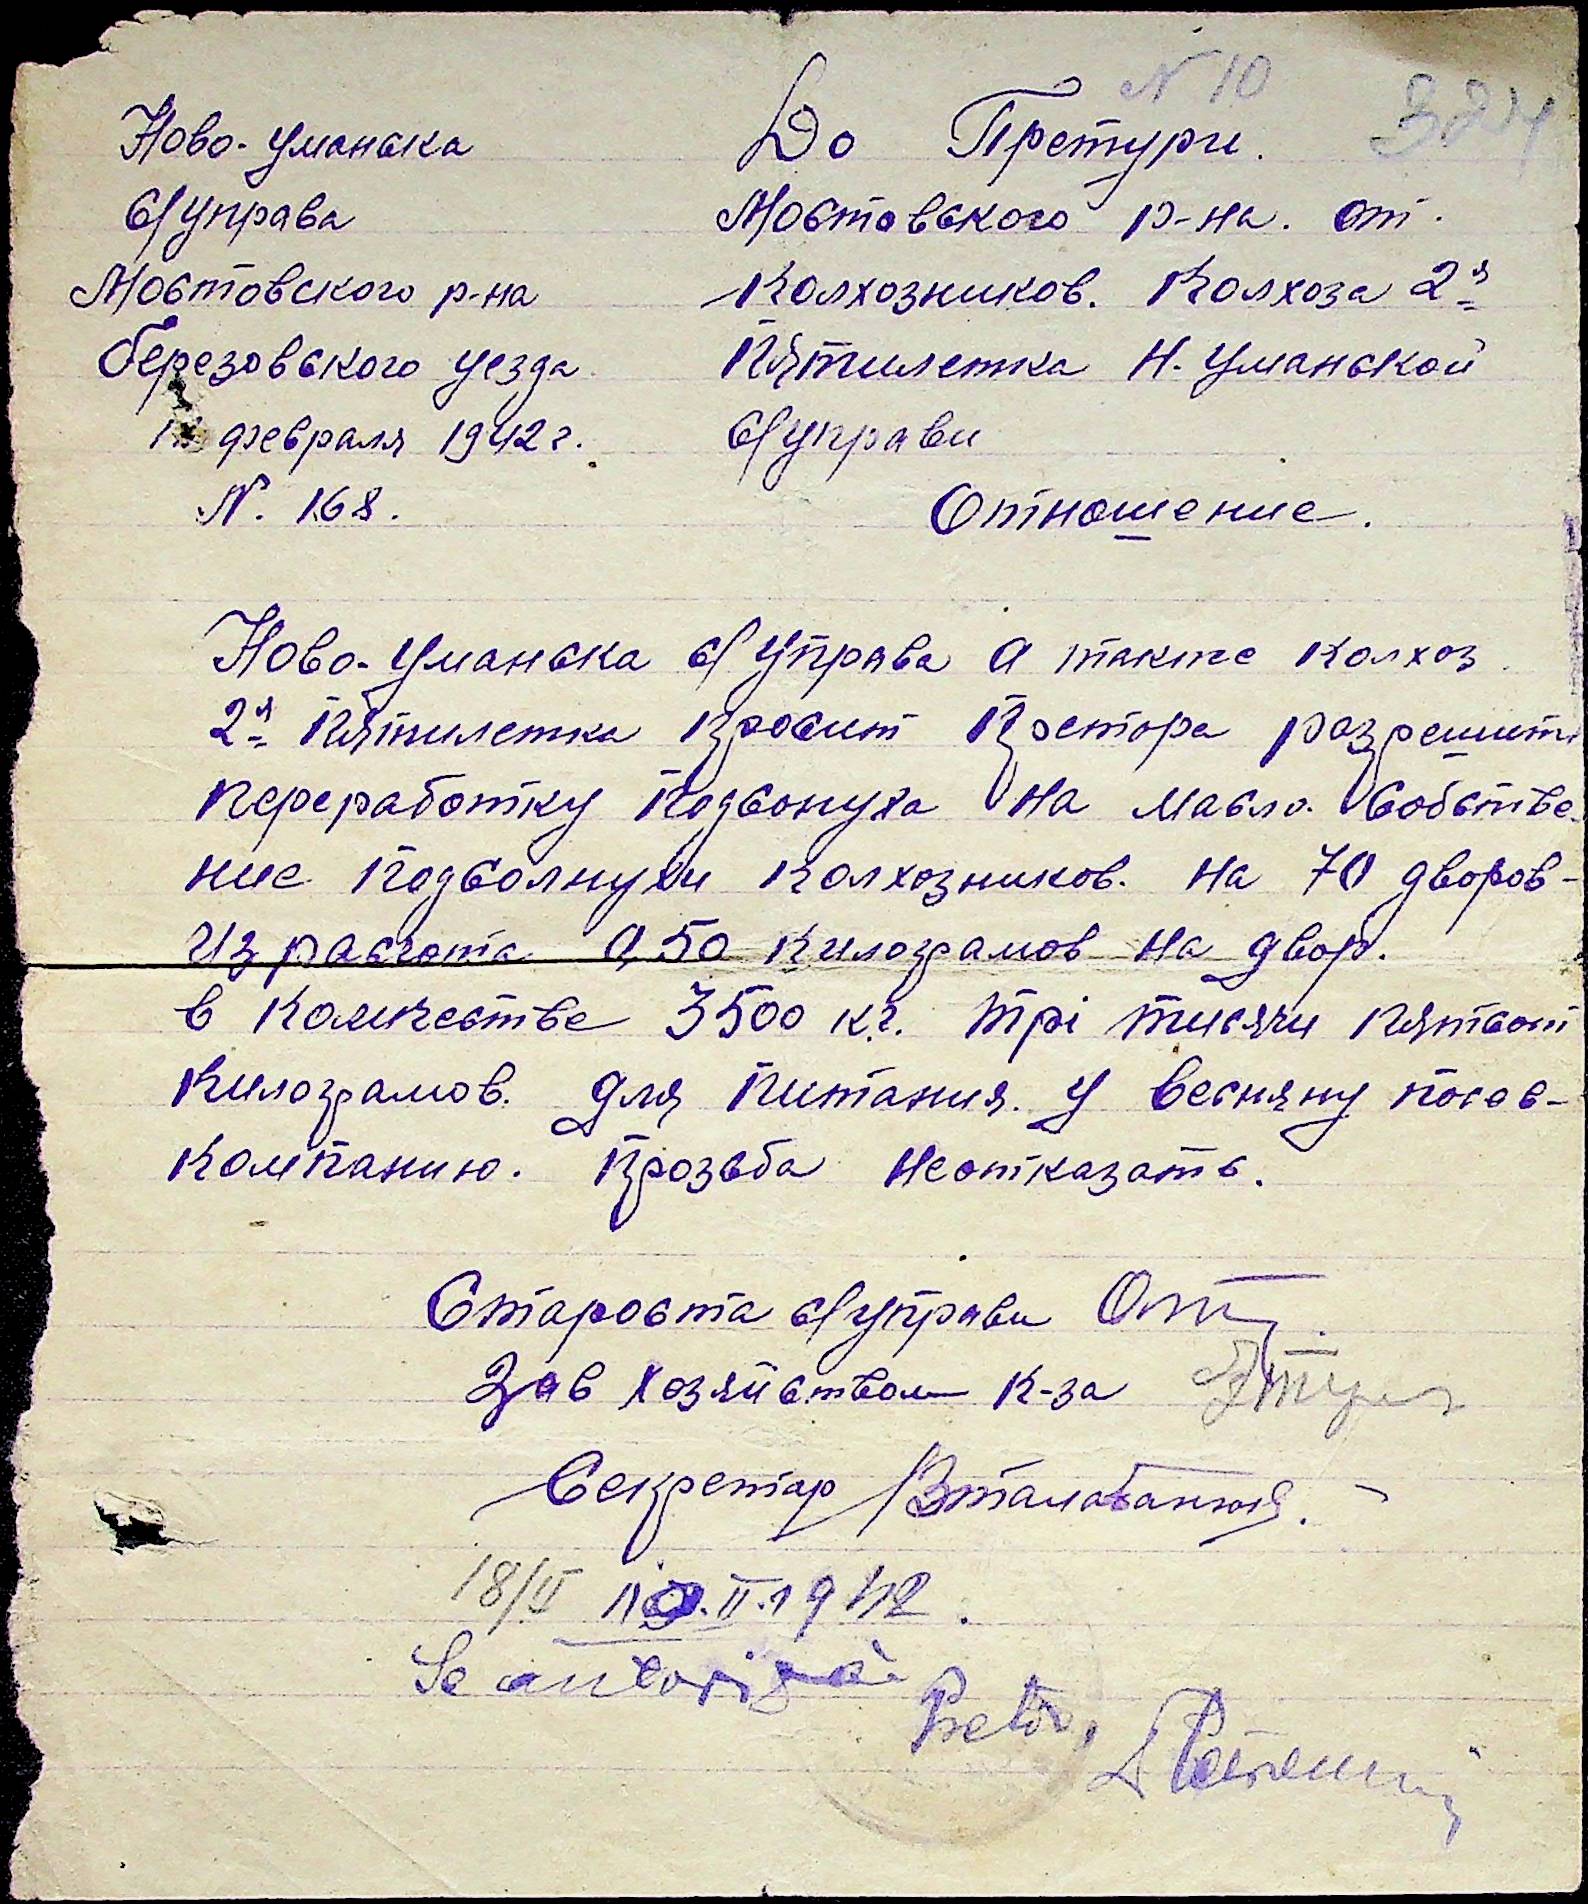 N 10
324
Ново-Уманска
С/управа
Мостовского р-на
березовского уезда
февраля 1942 г.
N. 168.
До Претури.
Мостовского р-на. от.
Колхозников. Колхоза 2я
Пятилетка Н. Уманской
С/управи
Отношение.
Ново-Уманска с/управа а также колхоз
2я Пятилетка просит Претора разрешить
переработку Подсонуха на масло. Собстве-
ние Подсолнухи колхозников. на 70 дворов-
Из расчота а 50 килограмов на двор.
в количестве 3500 кг. трі тисячи пятсот
килограмов. для питания. у весняну посев-
компанию. Прозьба неотказать.
Староста с/управи
Зав хозяйством к-за
Секретар
18/II 19.II.1942.
Se autoriză
Pretor,